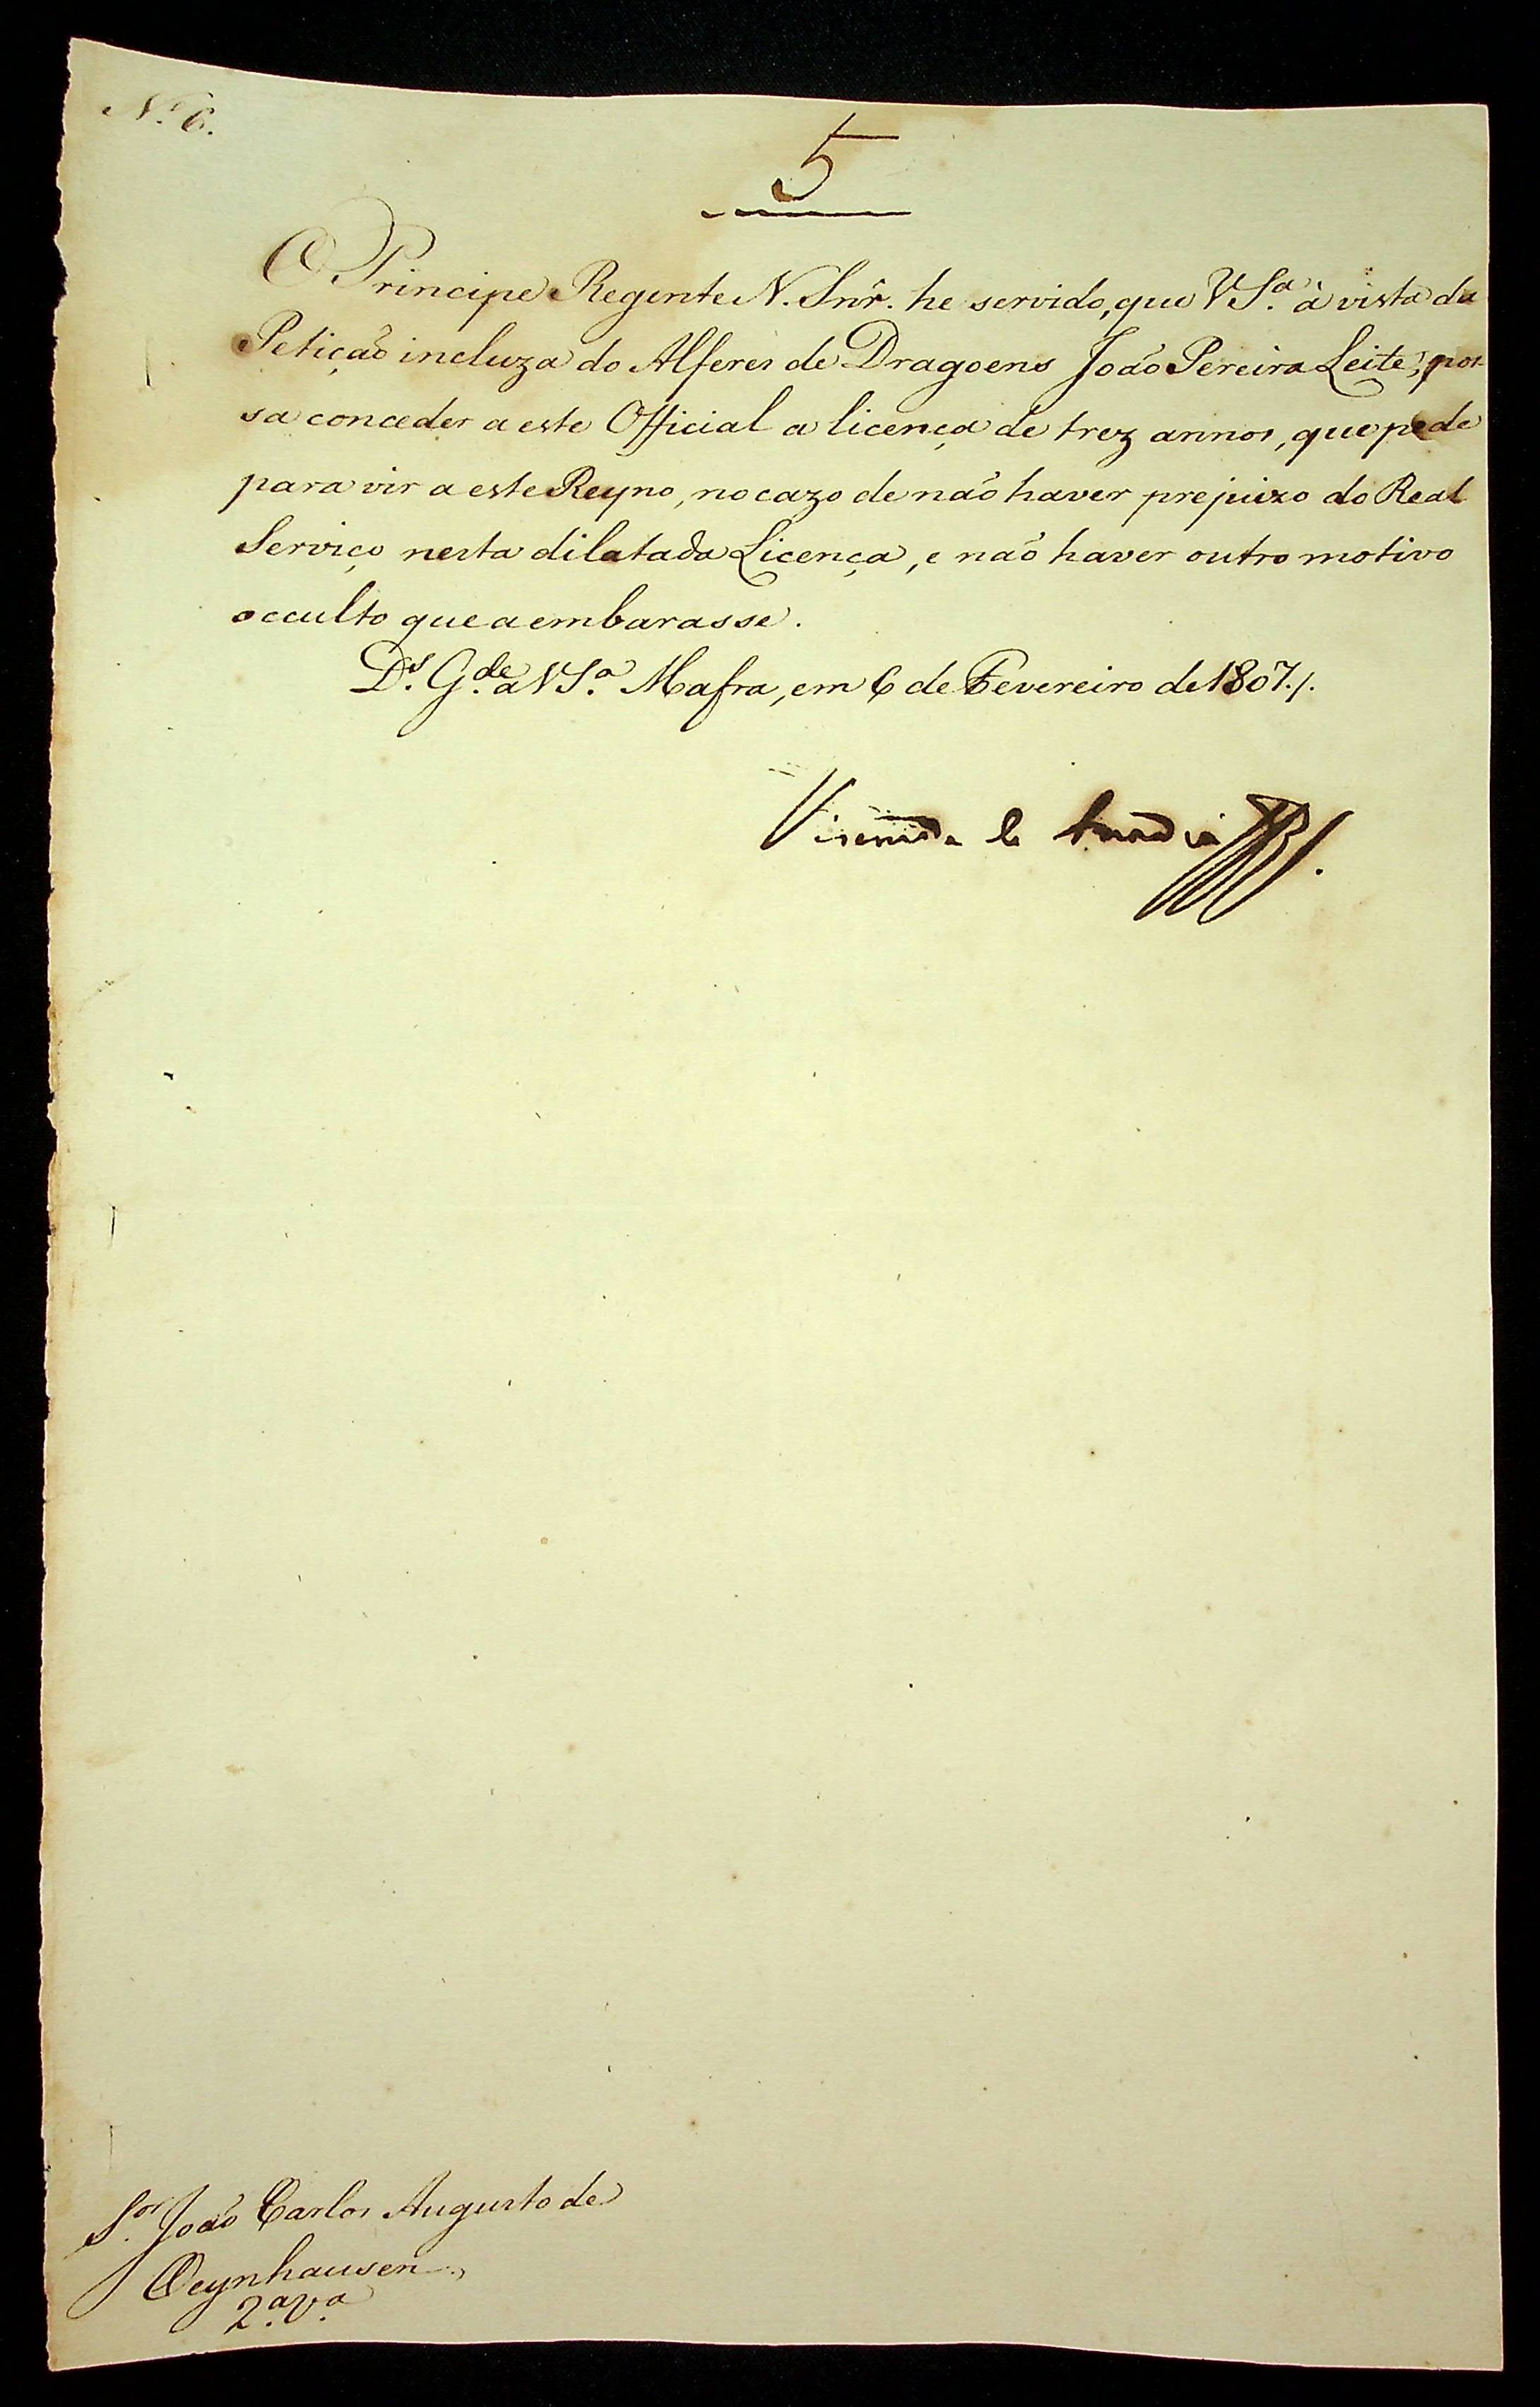 N.º 6.
5
O Principe Regente N. Snr̂. he servido, que VS.ª à vista da
Petição incluza do Alferes de Dragoens João Pereira Leite, pos-
sa conceder a este Official a licença de trez annos, que pede
para vir a este Reyno, no cazo de não haver prejuizo do Real
Serviço nesta dilatada Licença, e não haver outro motivo
occulto que a embarasse.
D.s G.de a VS.ª Mafra, em 6 de Fevereiro de 1807./.
Visconde de Anadia
S.or João Carlos Augusto de
Oeynhausen.
2.ª v.ª